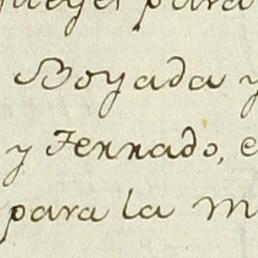 para
Boyada y
y Ferrado, e
para la m